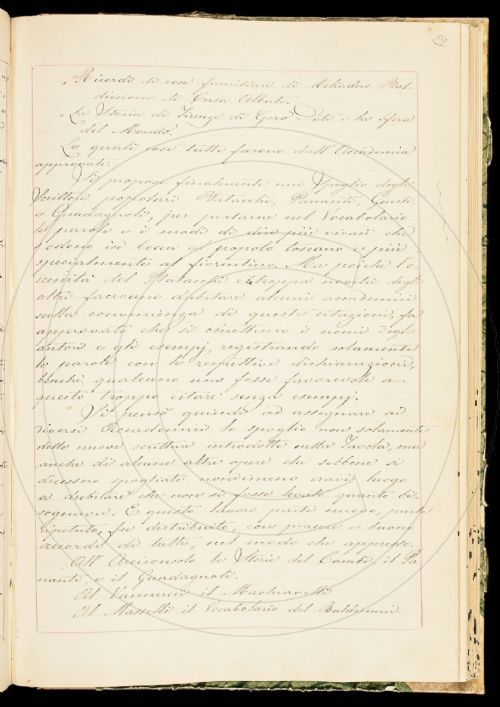 Ricordi di cose familiari di Meliadus Bal-
discioni di Casa Alberti.
La Storia di Firenze di Goro Dati e la Sfera
del Mondo.
Le quali cose tutte furono dall'Accademia
approvate.
Si propose finalmente uno spoglio degli
Scrittori popolari Batacchi, Pananti, Giusti
e Guadagnoli, per portarne nel Vocabolario
le parole e i modi di dire più vivaci che
s'odono in bocca al popolo toscano e più
specialmente al fiorentino. Ma poichè l'o-
scenità del Batacchi e troppa novità degli
altri facevano dubitare alcuni accademici
sulla convenienza di queste citazioni, fu
approvato che si omettano i nomi degli
autori e gli esempj, registrando solamente
le parole con le respettive dichiarazioni,
benchè qualcuno non fosse favorevole a
questo troppo citare senza esempj.
Si pensò quindi ad assegnare ad
diversi Accademici lo spoglio non solamente
delle nuove scritture introdotte nella Tavola, ma
anche di alcune altre opere che sebbene si
dicessero spogliate nondimeno eravi luogo
a dubitare che non si fosse levato quanto bi-
sognava. E questo lavoro parte nuovo, parte
ripetuto, fu distribuito, con piacere e buono
accordo di tutti, nel modo che appresso.
All'Arciconsolo le Storie del Cambi, il Pa-
nanti, e il Guadagnoli.
Al Vannucci il Machiavelli
Al Masselli il Vocabolario del Baldinucci.